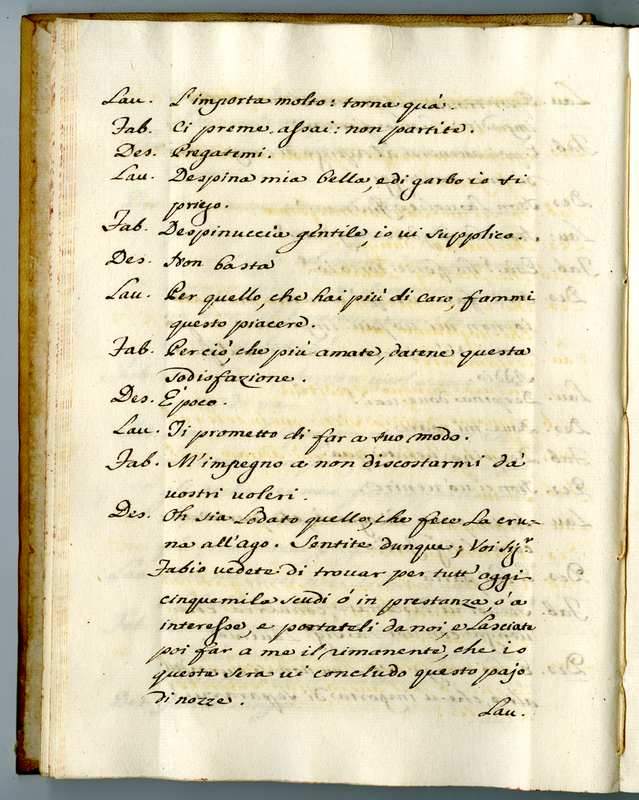 Lau. L'importa molto: torna quà.
Fab. Ci preme assai: non partite.
Des. Pregatemi.
Lau. Despina mia bella, e di garbo io ti
priego.
Fab. Despinuccia gentile, io vi supplico.
Des. Non basta
Lau. Per quello, che hai più di caro, fammi
questo piacere.
Fab. Per ciò, che più amate, datene questa
sodisfazione.
Des. E' poco.
Lau. Ti prometto di far a tuo modo.
Fab. M'impegno a non discostarmi da'
vostri voleri.
Des. Oh sia Lodato quello, che fece La cru=
na all'ago. Sentite dunque; Voi Sig.r
Fabio vedete di trovar per tutt'oggi
cinquemila scudi ò in prestanza, ò a
interesse, e portateli da noi, e Lasciate
poi far à me il rimanente, che io
questa sera vi concludo questo pajo
di nozze.
Lau.